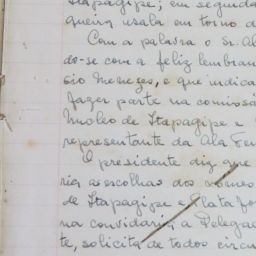 Itapagipe; em seguida
queira usala em torno d
Com a palavra o Sr. Al
do-se com a feliz lembran
sio Menezes, e que indica
fazer parte na comissã
Nucleo de Itapagipe e
representante da Ala Fem
O presidente diz que
ria as escolhas dos nomes
de Itapagipe e Plata for
na convidaria a Delegac
te, solicita de todos circu